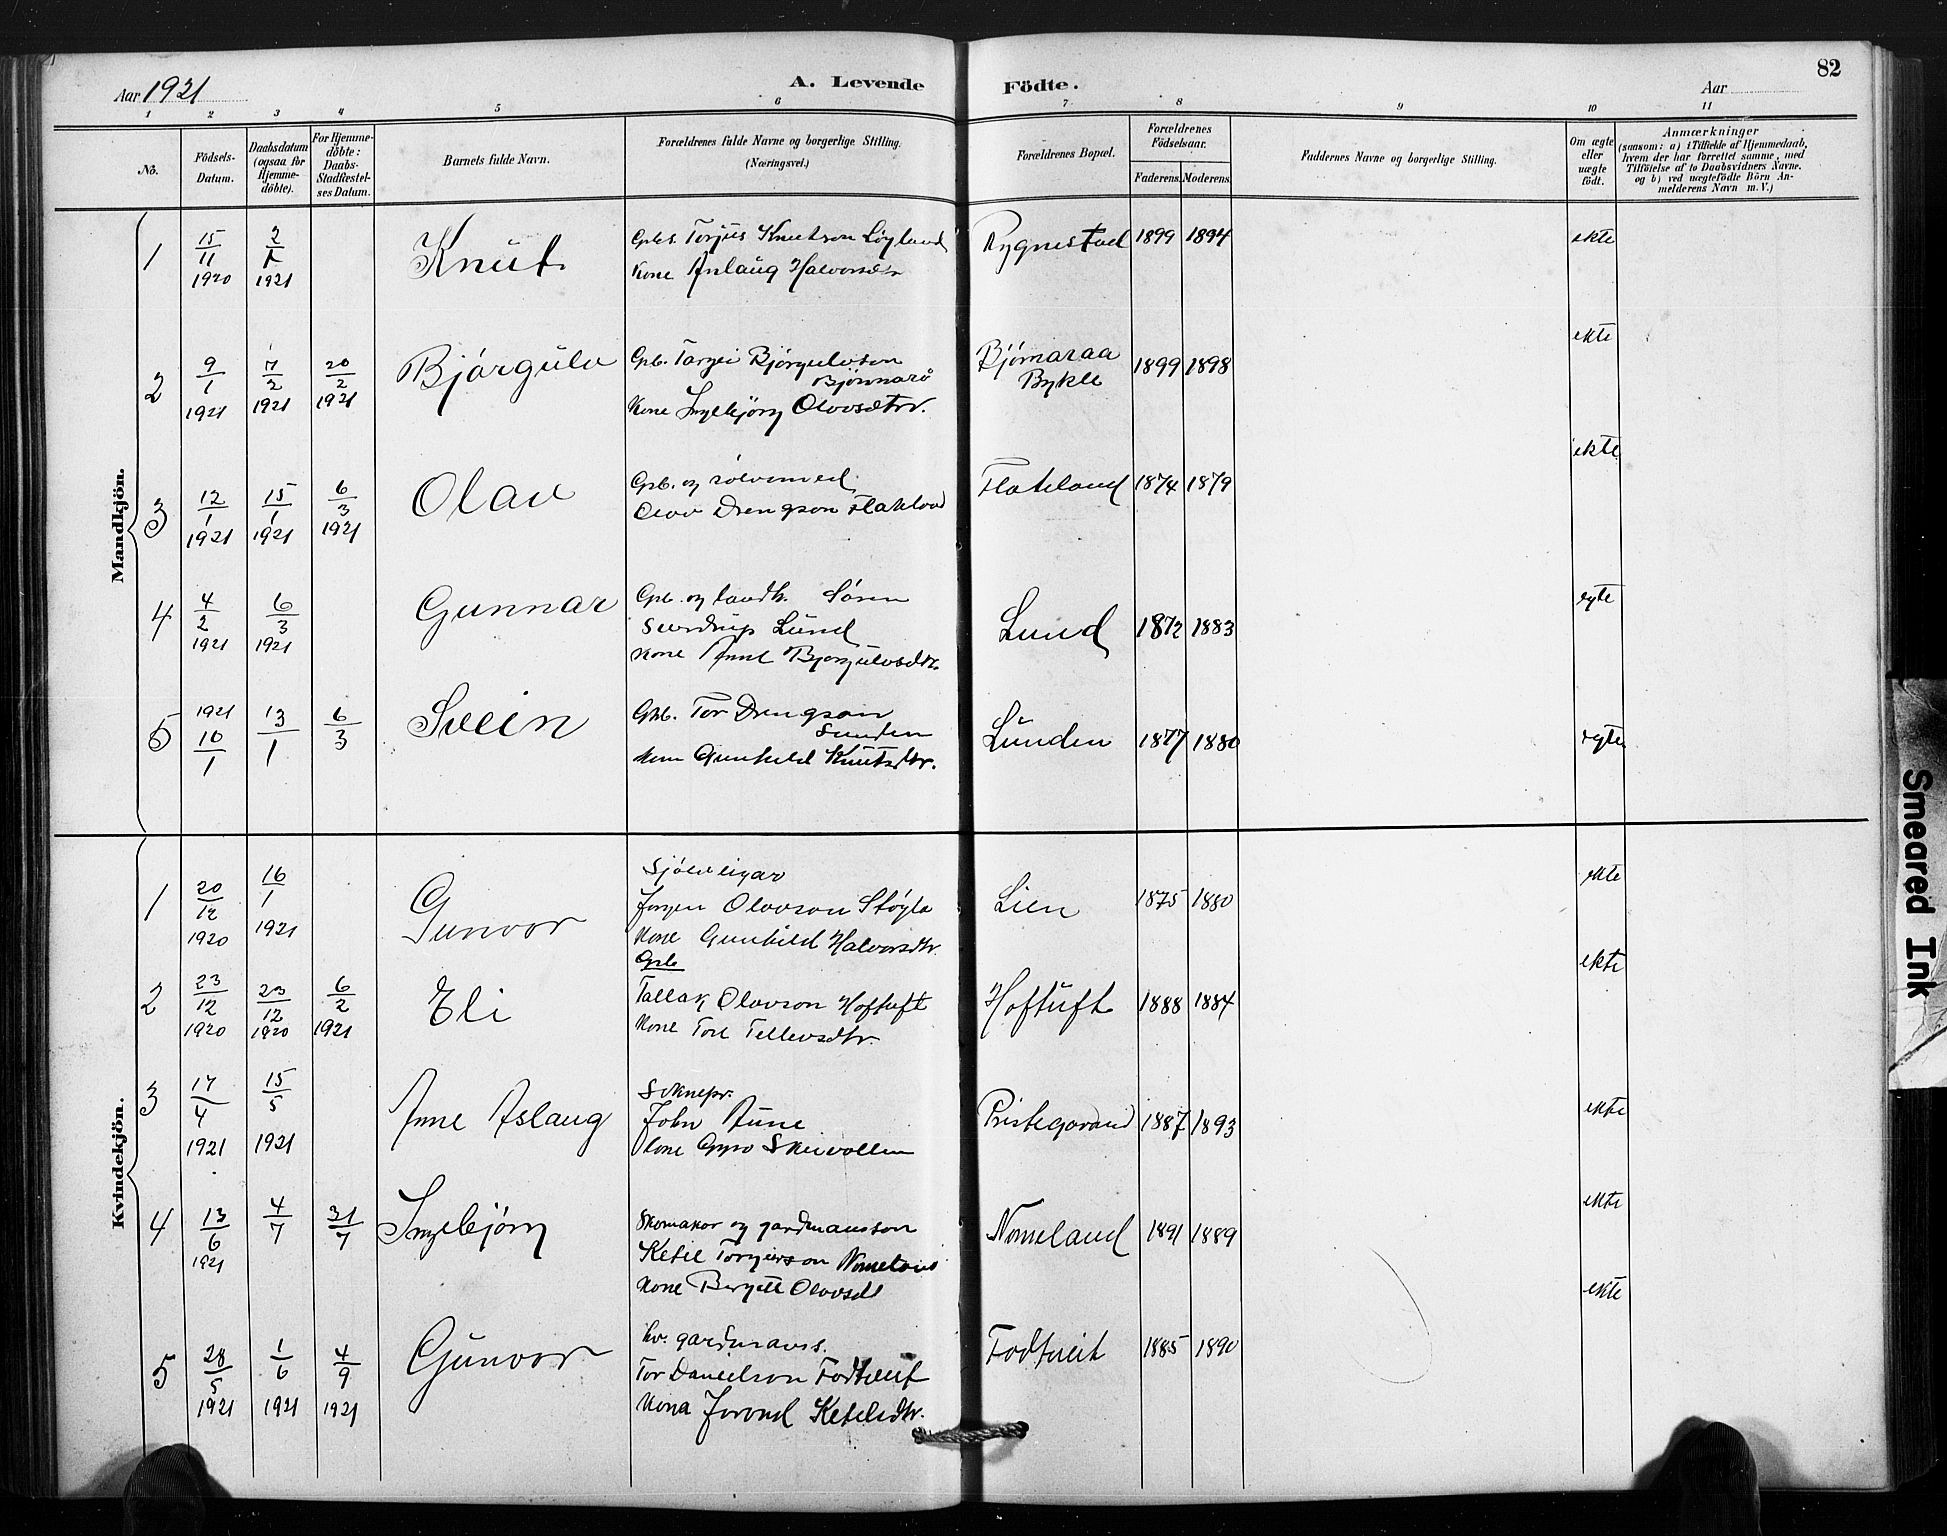 Aar 1921
A. Levende Födte.
Aar
82
1 2 3 4 5 6 7 8 9 10 11
No.
Födsels-Datum.
Daabsdatum (ogsaa for Hjemmedöbte).
For Hjemmedöbte: Daabs-Stadfæstelses Datum.
Barnets fulde Navn.
Forældrenes fulde Navne og borgerlige Stilling.
(Næringsvei.)
Forældrenes Bopæl.
Forældrenes Födselsaar.
Faderens. Moderens.
Faddernes Navne og borgerlige Stilling.
Om ægte eller uægte födt.
Anmærkninger
(saasom: a) i Tilfælde af Hjemmedaab, hvem der har forrettet samme, med Tilföielse af to Daabsvidners Navne. og b) ved uægtefödte Börn Anmelderens Navn m. V.)
Mandkjön.
1 15/11 1920 2/1 1921 Knut
Torjus Knutson Løyland
Kone Anlaug Halvorsdtr
Rygnestad 1899 1894 ekte
2 9/1 1921 7/2 1921 20/2 1921 Bjørgulv
Gpb. Targei Bjørgulvson
Bjønnarå
Kone Ingebjørg Olovsdtr.
Bjørnaraa
Bykle
1899 1898 ekte
3 12/1 1921 15/1 1921 6/3 1921 Olav
Gpb. og sølvsmed
Olov Drengson Flateland
Flateland 1874 1879 ekte
4 4/2 1921 6/3 1921 Gunnar
Gpb. og landh. Søren
Sverdrup Lund
Kone Anne Bjørgulvsdtr.
Lund 1872 1883 egte
5 1921 10/1 13/1 6/3 Svein
Gpb. Tor Drengson
Lunden
Kone Gunhild Knutsdtr.
Lunden 1877 1880 egte
Kvindekjön.
1 20/12 1920 16/1 1921 Gunvor
Sjølveigar
Jørgen Olovson Støylo
Kone Gunhild Halvorsdtr.
Lien 1875 1880 ekte
2 23/12 1920 23/12 1920 6/2 1921 Eli
Gpb
Tallak Olovson Hoftuft
Kone Tore Tellevsdtr.
Hoftuft 1888 1884 ekte
3 17/4 1921 15/5 1921 Anne Aslaug
Soknepr.
John Aune
Kone Gyro Skeivollen
Prestegarand 1887 1893 ekte
4 13/6 1921 4/7 31/7 Ingebjørg
Skomakar og gardmansson
Ketil Torgeirson Nomeland
Kone Bergitt Olovsdt
Nomeland 1891 1889 ekte
5 28/5 1921 1/6 1921 4/9 1921 Gunvor
hv. gardmanns.
Tor Danielson Fodtveit
Kona Jorond Ketilsdtr.
Fodtveit 1885 1890 ekte
Smeared Ink